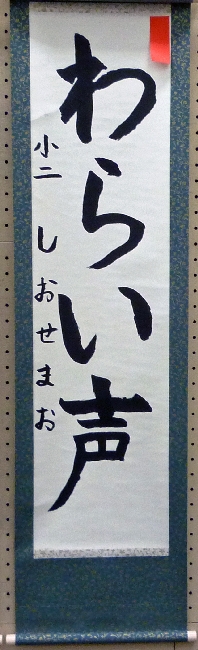 わらい声
小二 しおせまお